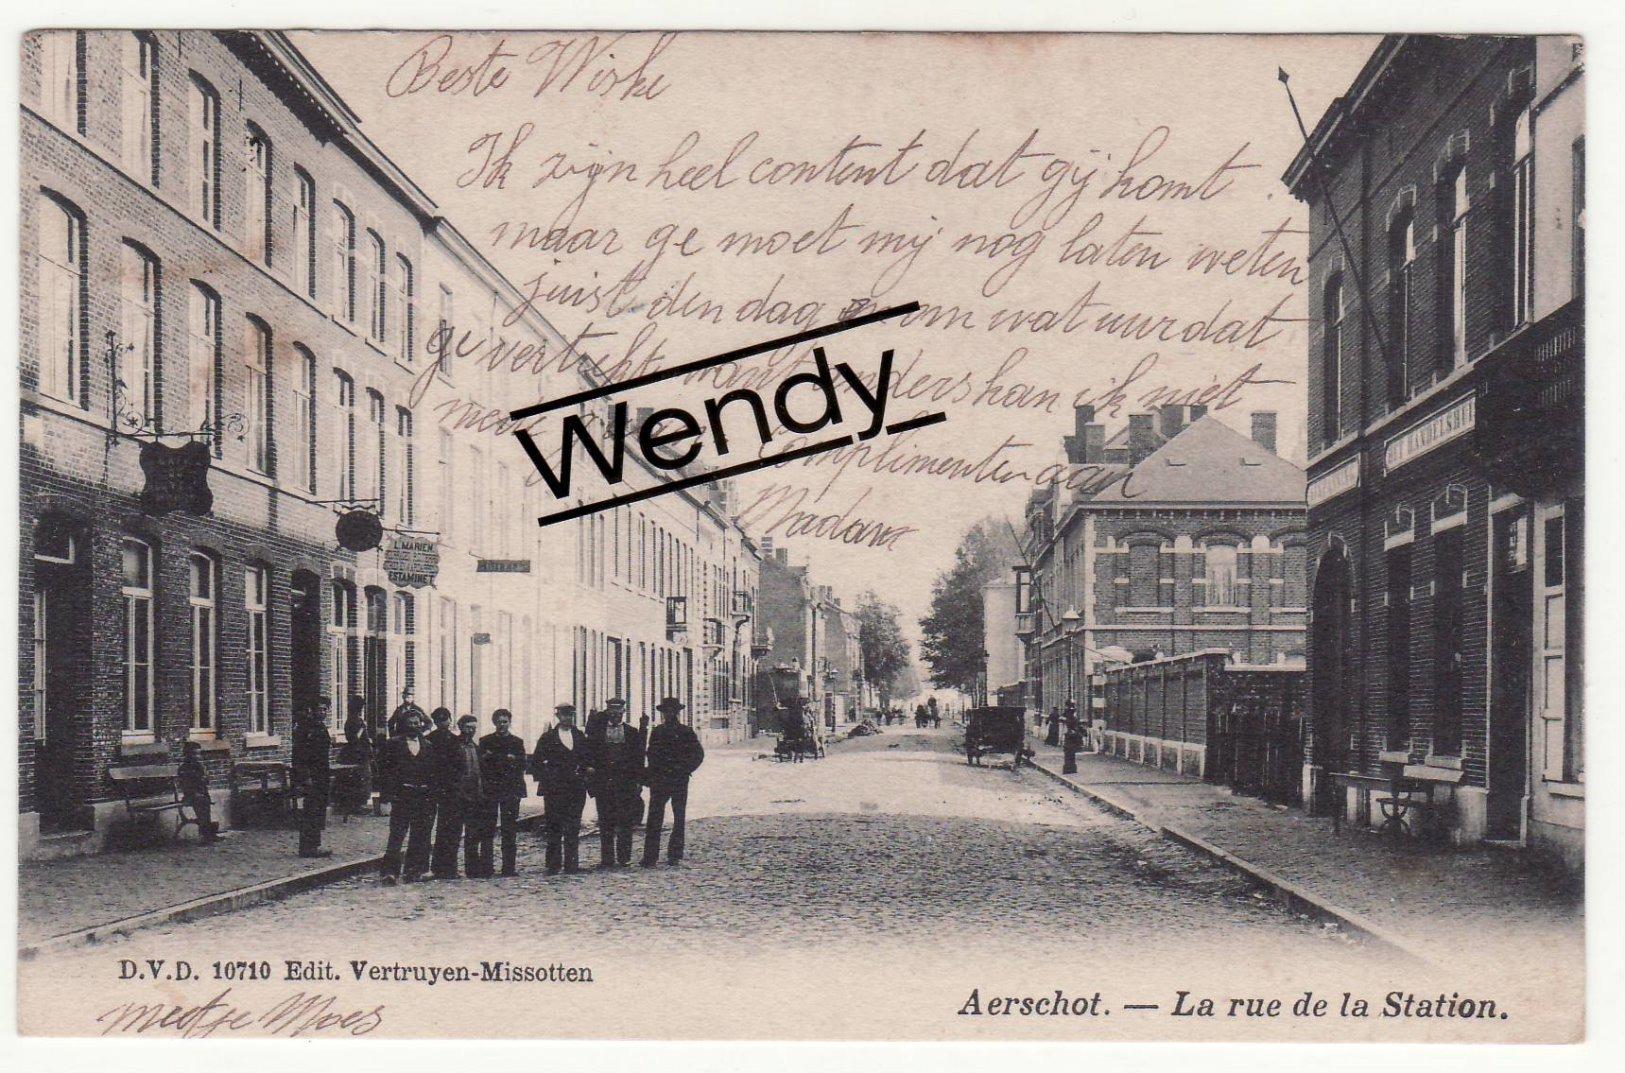 Beste Wiske
Ik zijn heel content dat gij komt.
maar ge moet mij nog laten weten
juist den dag en om wat uur dat
ge vertrekt want anders kan ik niet
Complimenten aan
Madame
Wendy
L. MARIEN
ESTAMINET
D.V.D. 10710 Edit. Vertruyen-Missotten
Aerschot. — La rue de la Station.
meetje Moes